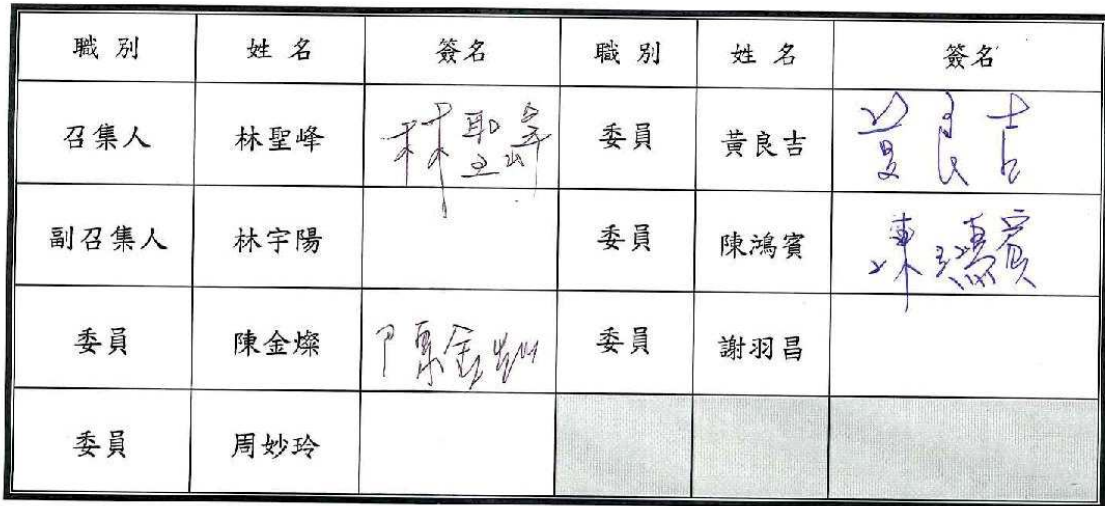 職別 姓名 簽名 職別 姓名 簽名
召集人 林聖峰 林聖峰 委員 黃良吉 黃良吉
副召集人 林宇陽 委員 陳鴻賓 陳鴻賓
委員 陳金燦 陳金燦 委員 謝羽昌
委員 周妙玲